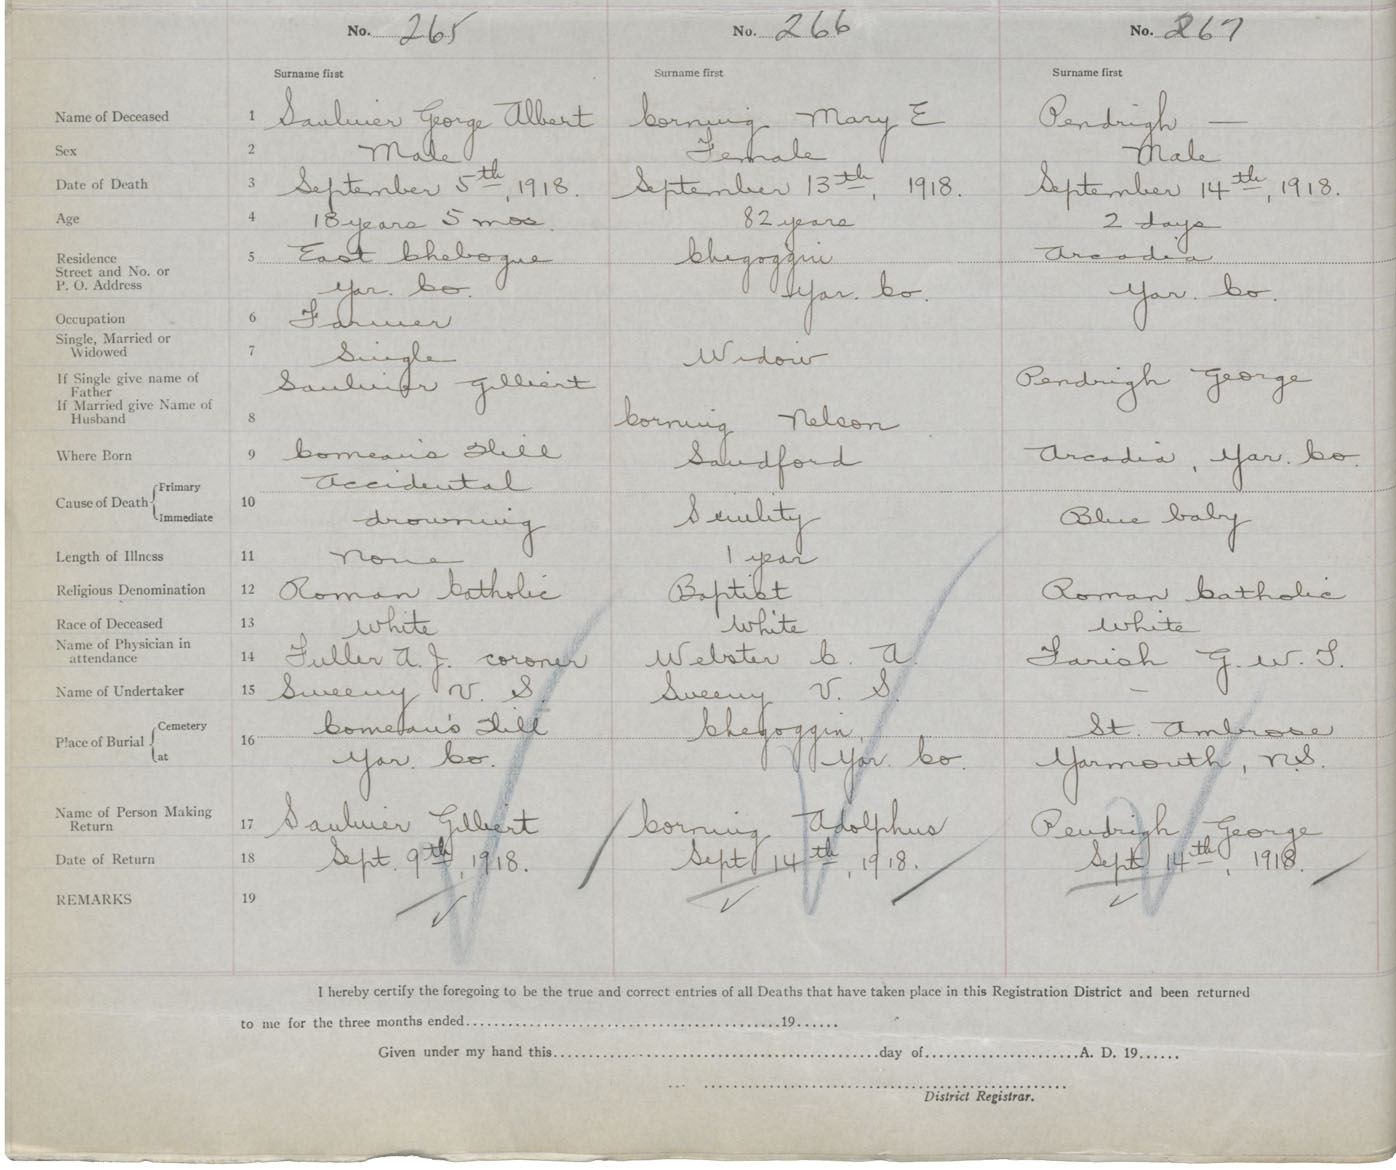 No. 265 No. 266 No. 267
Surname first Surname first Surname first
Name of Deceased 1 Saulnier George Albert Corning Mary E Pendrigh —
Sex 2 Male Female Male
Date of Death 3 September 5th, 1918. September 13th, 1918. September 14th, 1918.
Age 4 18 years 5 mos. 82 years 2 days
Residence 5 East Chebogue Chegoggin Arcadia
Street and No. or
P. O. Address Yar. Co. Yar. Co. Yar. Co.
Occupation 6 Farmer
Single, Married or
Widowed 7 Single Widow
If Single give name of
Father Saulnier Gilbert Pendrigh George
If Married give Name of
Husband 8 Corning Nelson
Where Born 9 Comeau's Hill Sandford Arcadia, Yar. Co.
Cause of Death { Primary 10 Accidental
Immediate drowning Senility Blue baby
Length of Illness 11 None 1 year
Religious Denomination 12 Roman Catholic Baptist Roman Catholic
Race of Deceased 13 White White White
Name of Physician in
attendance 14 Fuller A. J. coroner Webster C. A. Farish G. W. T.
Name of Undertaker 15 Sweeny V. S. Sweeny V. S. —
Place of Burial { Cemetery 16 Comeau's Hill Chegoggin, St. Ambrose
at Yar. Co. Yar. Co. Yarmouth, N.S.
Name of Person Making
Return 17 Saulnier Gilbert Corning Adolphus Pendrigh George
Date of Return 18 Sept. 9th, 1918. Sept 14th, 1918. Sept 14th, 1918.
REMARKS 19
I hereby certify the foregoing to be the true and correct entries of all Deaths that have taken place in this Registration District and been returned
to me for the three months ended..........19......
Given under my hand this..........day of..........A. D. 19......
District Registrar.